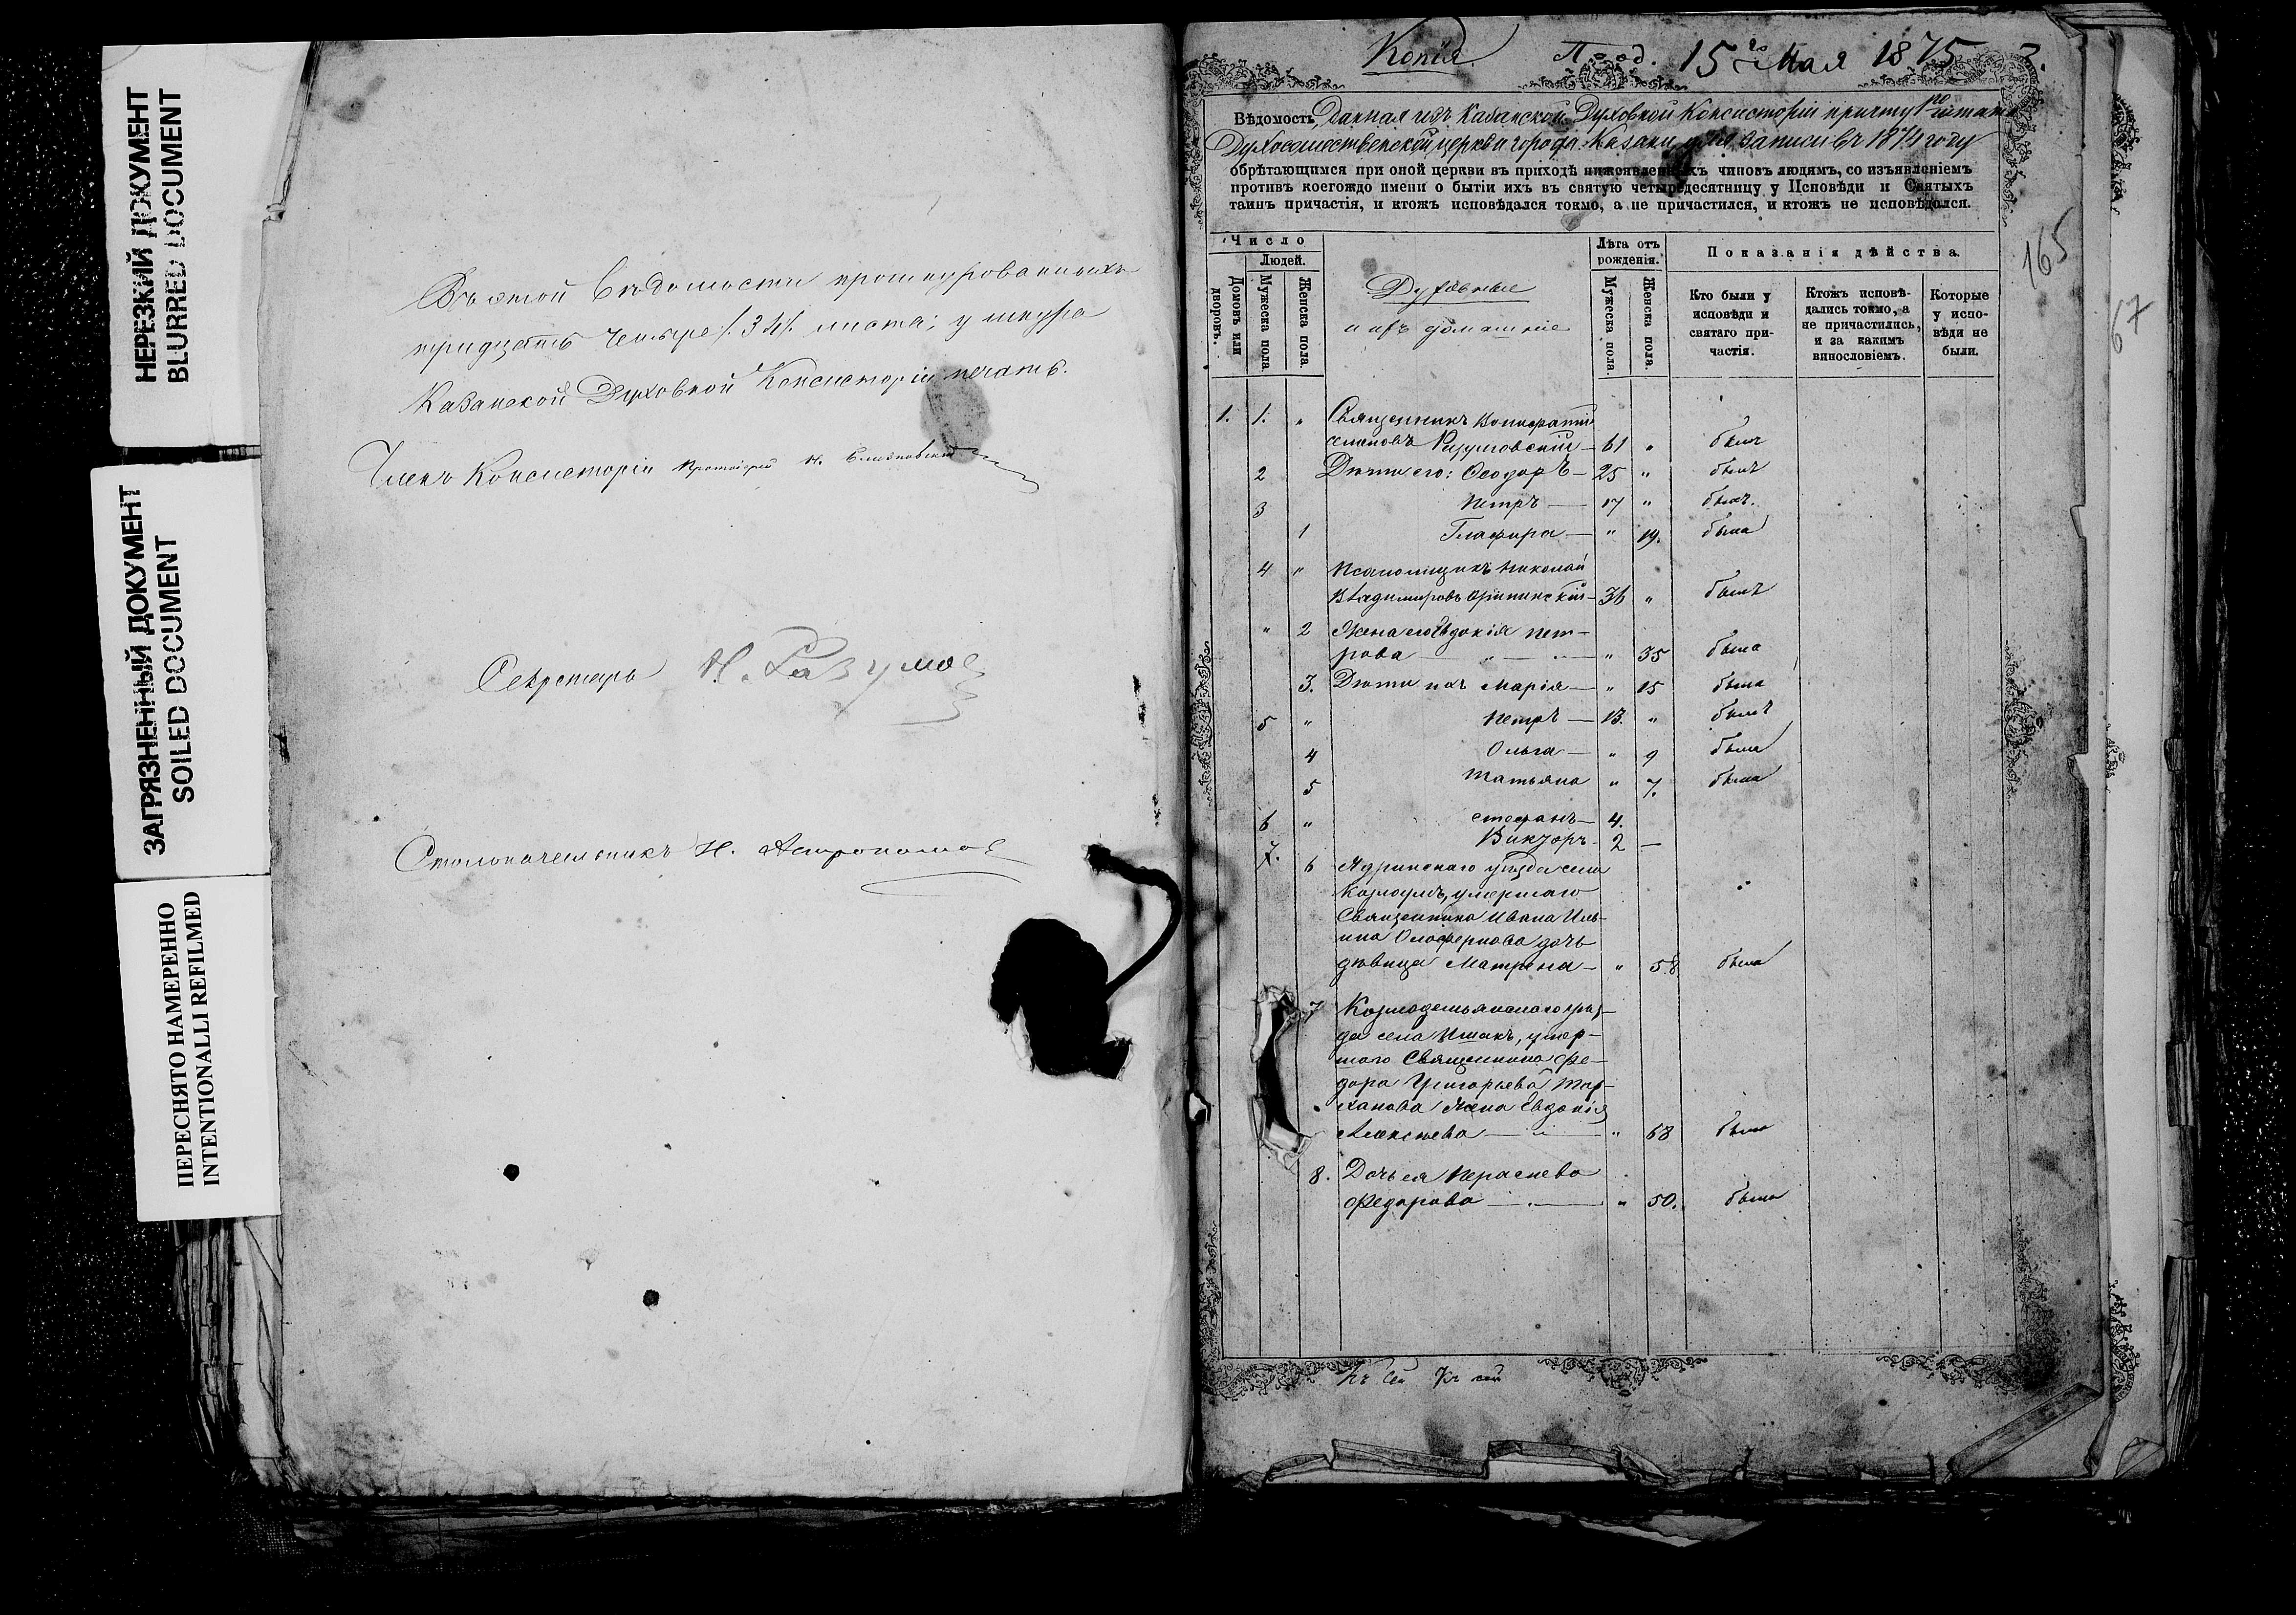 НЕРЕЗКИЙ ДОКУМЕНТ
BLURRED DOCUMENT
ЗАГРЯЗНЕННЫЙ ДОКУМЕНТ
SOILED DOCUMENT
ПЕРЕСНЯТО НАМЕРЕННО
INTENTIONALLI REFILMED
Въ этой Ведомости прошнурованныхъ
тридцать четыре /34/. листа; у шнура
Казанской Духовной Консисторіи печать.
Членъ Консисторіи Протоіерей
Секретарь Н. Разумов
Столоначальникъ Н. Астрономов
Копія. 15го Мая 1875
165
67
Вѣдомость, Данная изъ Казанской Духовной Консисторіи причту
Духосошественской церкви города Казани, для записи въ 1874 году
обрѣтающимся при оной церкви въ приходѣ нижеявленныхъ чиновъ людямъ, со изъявленіемъ
противъ коегождо имени о бытіи ихъ въ святую четыредесятницу у Исповѣди и Святыхъ
таинъ причастія, и ктожъ исповѣдался токмо, а не причастился, и ктожъ не исповѣдался.
Число
Людей.
Домовъ или дворовъ.
Мужеска пола.
Женска пола.
Духовные
и ихъ домашніе
Лѣта отъ рожденія.
Мужеска пола.
Женска пола.
Показанія дѣйства.
Кто были у исповѣди и святаго причастія.
Ктожъ исповѣдались токмо, а не причастились, и за какимъ винословіемъ.
Которые у исповѣди не были.
1. 1. " Священникъ
Семеновъ — 61 " былъ
2 Дѣти его: Ѳеодоръ — 25 " былъ
3 Петръ — 17 " былъ.
1 Глафира — " 19. была
4 " Псаломщикъ Николай
Владимировъ — 36 " былъ
" 2 Жена его Евдокія Пет-
рова — " — " 35 была
3. Дѣти ихъ Марія — " 15 была
5 " Петръ — 13. " былъ
4 Ольга — " 9 была
5 Татьяна " 7. была
6 " Стефанъ — 4.
7. Викторъ — 2 —
6 Ядринскаго уѣзда села
умершаго
Священника Ивана Иль-
ина Олоферова дочь
дѣвица Матрена — " 58 была
7 Козмодемьянскаго уѣз-
да села Ишакъ, умер-
шаго Священника Фе-
дора Григорьева Тар-
ханова жена Евдокія
Алексѣева — " — " 68 была
8. Дочь ея Параскева
Федорова — " 50. была
Къ сей Къ сей